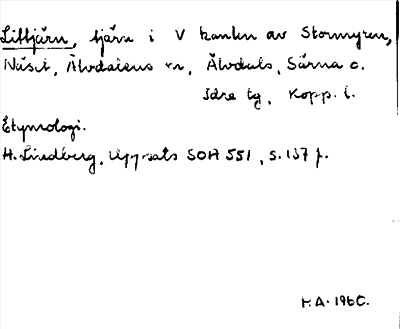 Lilltjärn, tjärn i V kanten av Stormyren,
Näset, Älvdalens sn, Älvdals, Särna o.
Idre tg, Kopp. l.
Etymologi.
H. Lindberg, Uppsats SOH 551, s. 137 f.
H.A. 1960.